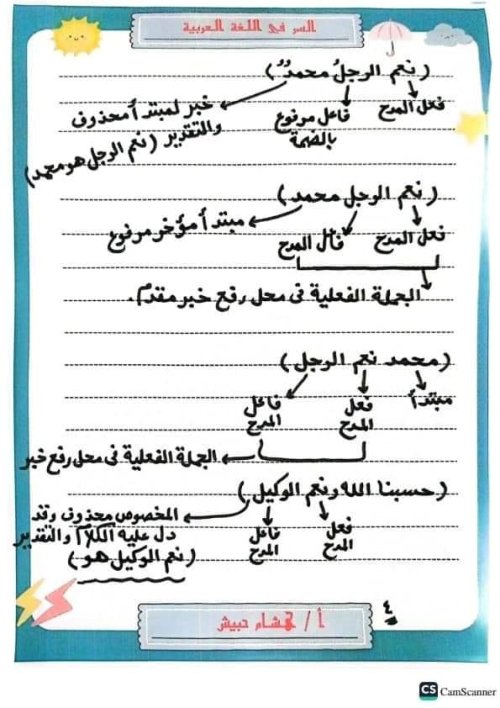 السر في اللغة العربية
(نعم الرجلُ محمدٌ)
فعل المدح
فاعل مرفوع
بالضمة
خبر لمبتدأ محذوف
والتقدير (نعم الرجل هو محمد)
(نعم الرجل محمد)
فعل المدح
فاعل المدح
مبتدأ مؤخر مرفوع
الجملة الفعلية في محل رفع خبر مقدم.
(محمد نعم الرجل)
مبتدأ
فعل
المدح
فاعل
المدح
الجملة الفعلية في محل رفع خبر
(حسبنا الله ونعم الوكيل)
فعل
المدح
فاعل
المدح
المخصوص محذوف وقد
دل عليه الكلام والتقدير
(نعم الوكيل هو)
٤
أ / هشام حبيش
CS CamScanner